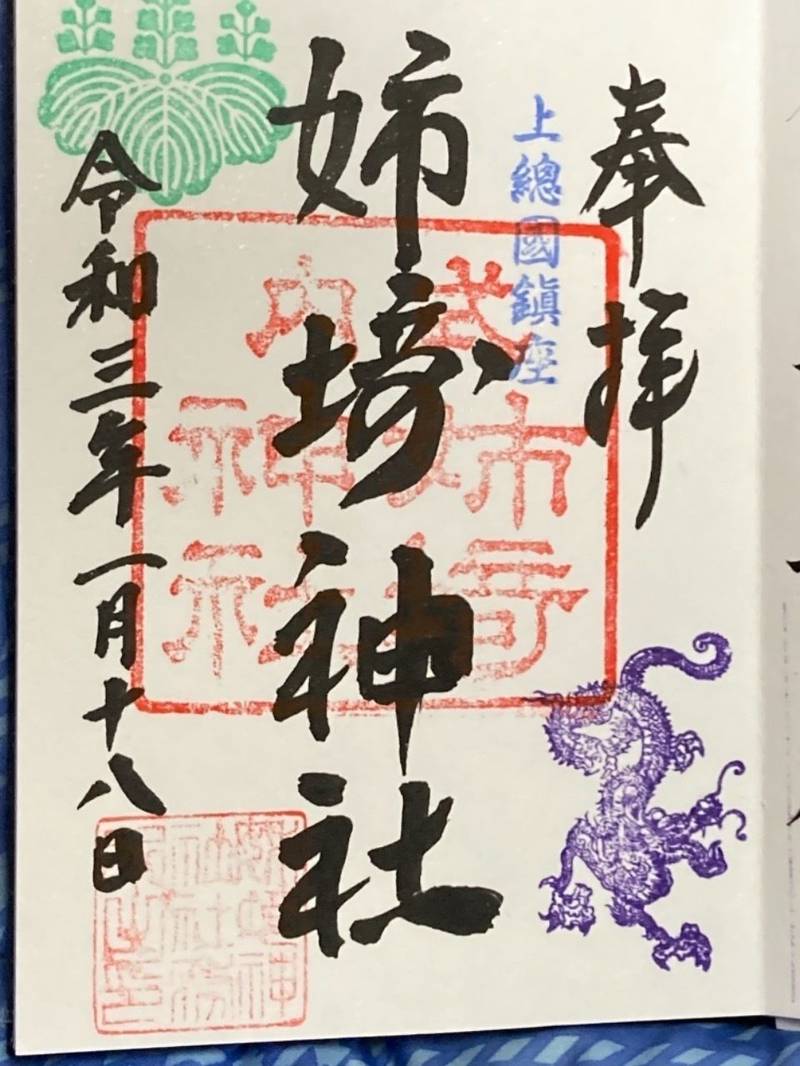 奉拝
上總國鎮座
姉埼神社
式内
姉埼
神社
令和三年一月十八日